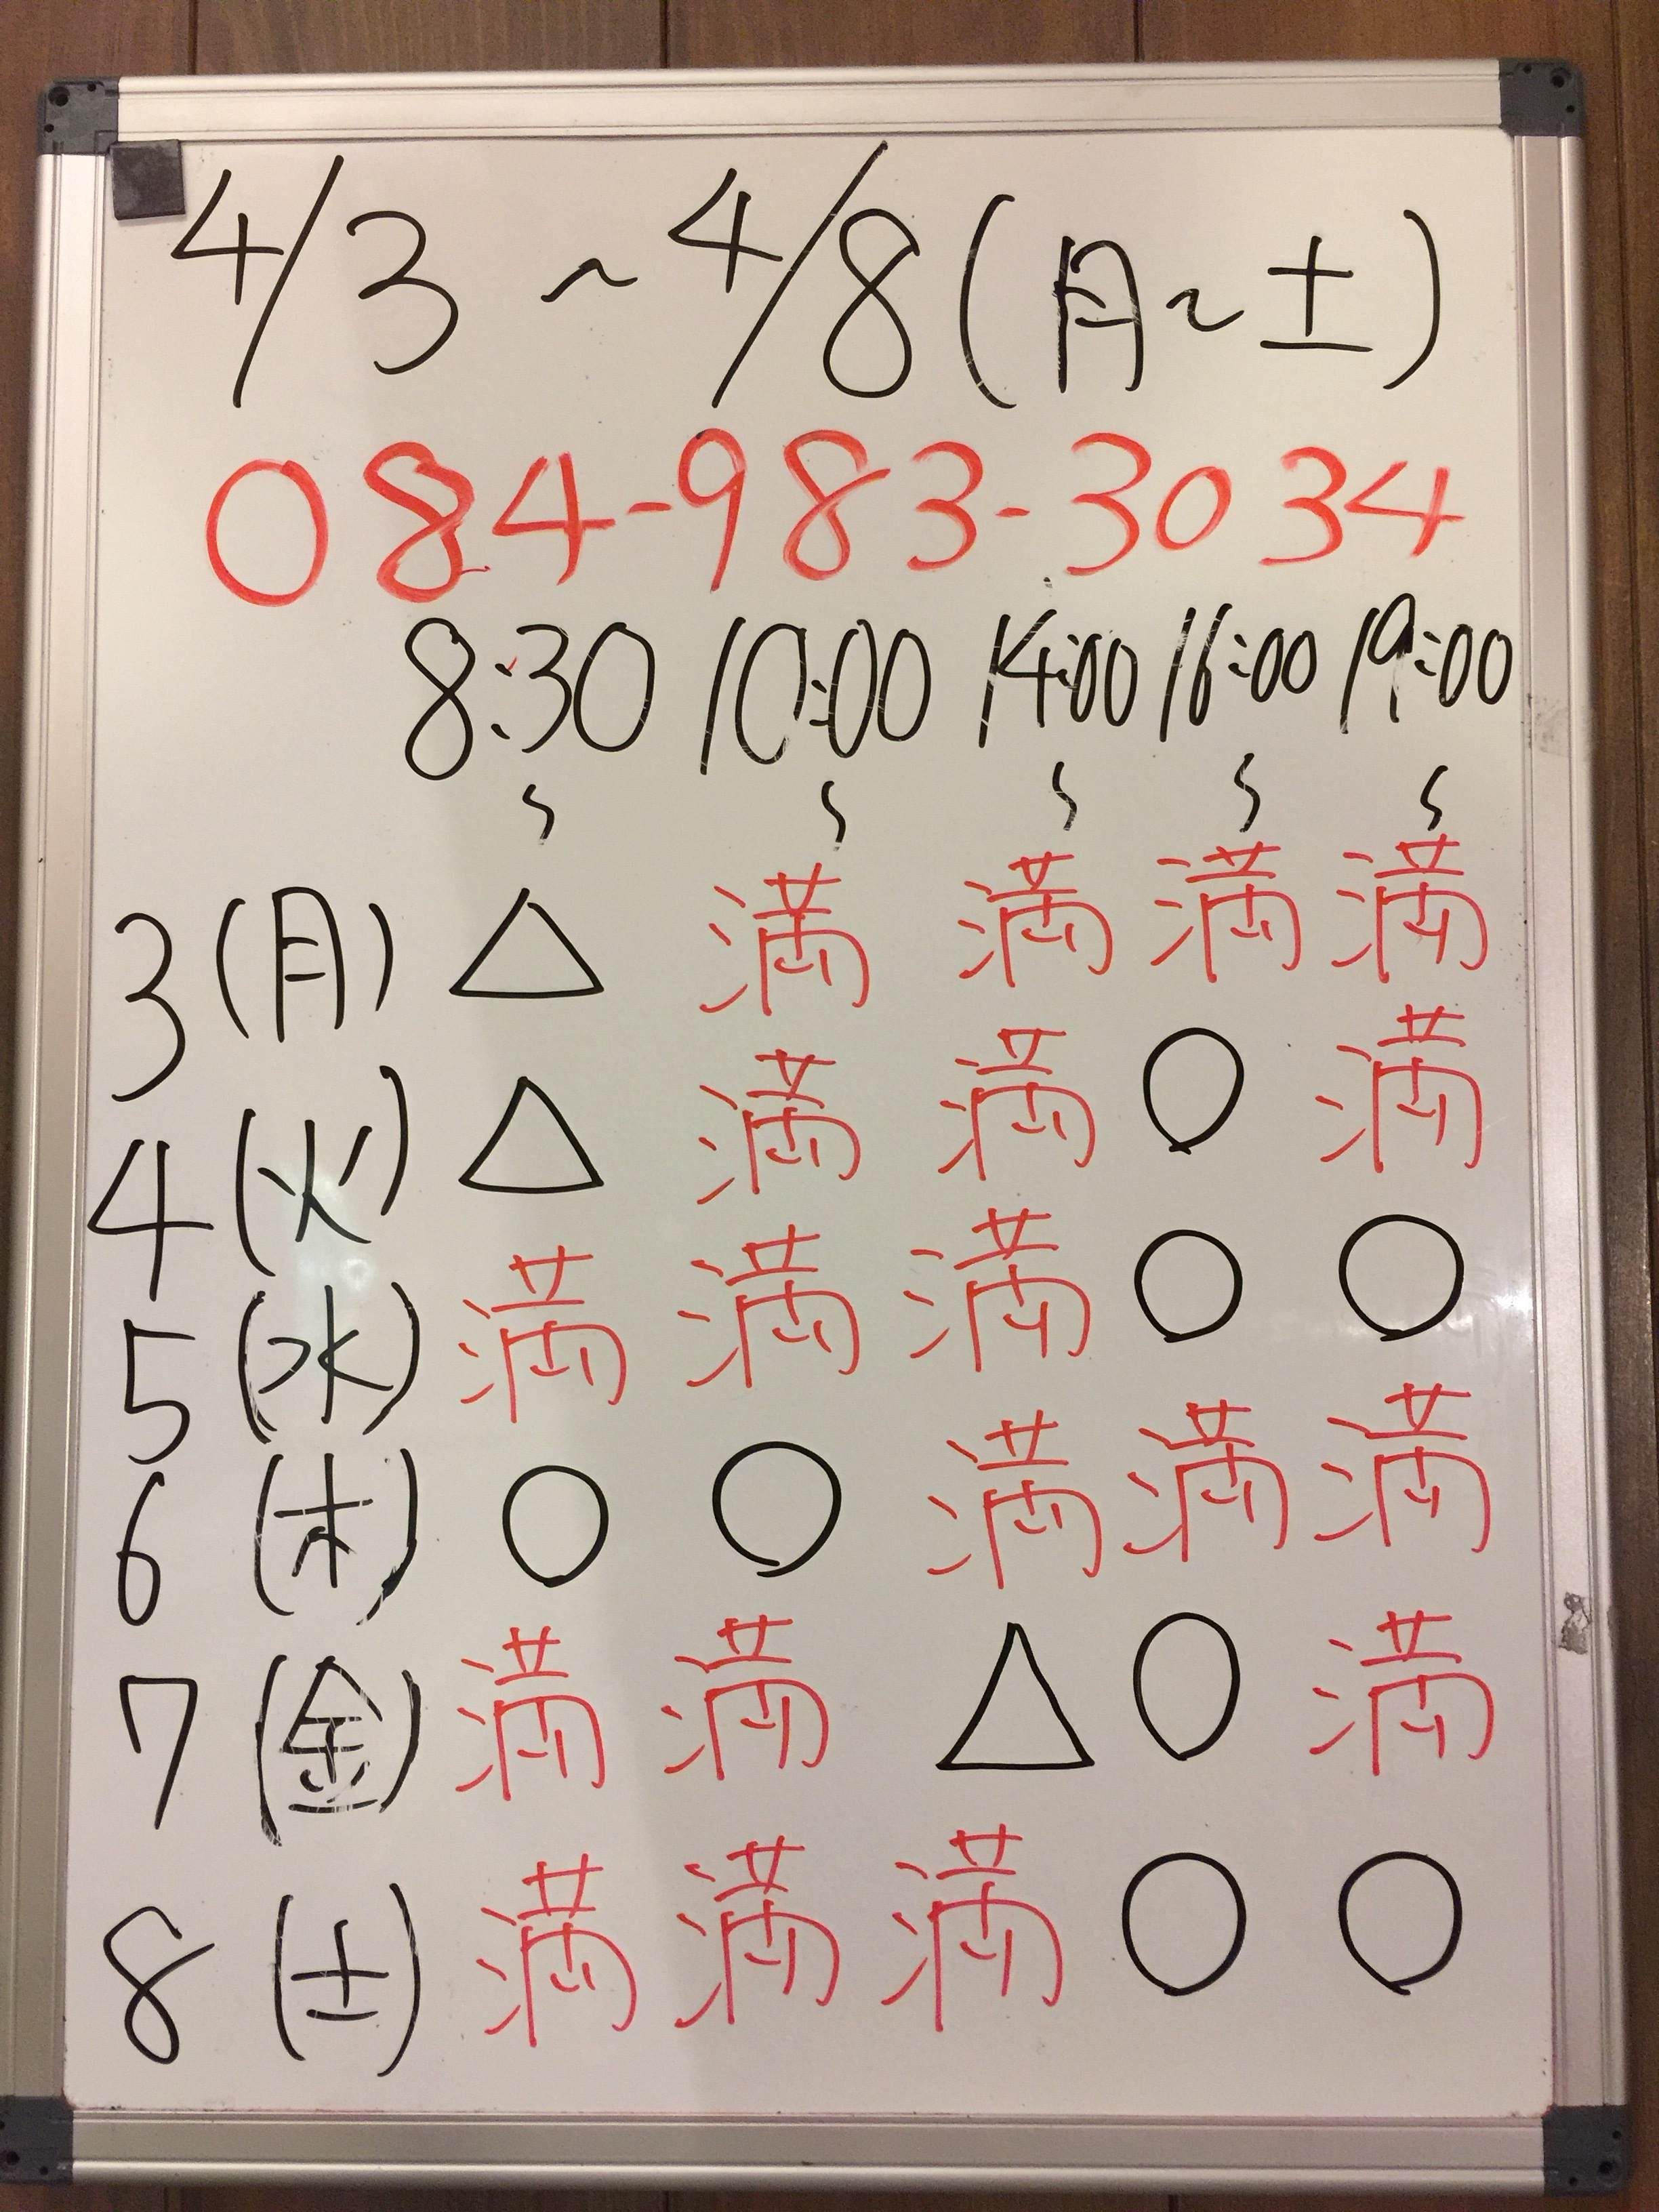 4/3～4/8(月～土)
084-983-3034
8:30 10:00 14:00 16:00 19:00
～ ～ ～ ～ ～
3(月) △ 満 満 満 満
4(火) △ 満 満 ○ 満
5(水) 満 満 満 ○ ○
6(木) ○ ○ 満 満 満
7(金) 満 満 △ ○ 満
8(土) 満 満 満 ○ ○